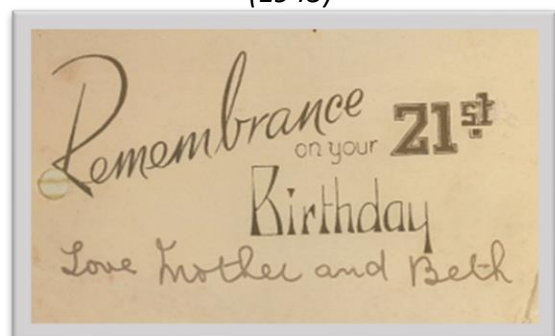 Remembrance
on your 21st
Birthday
Love Mother and Beth